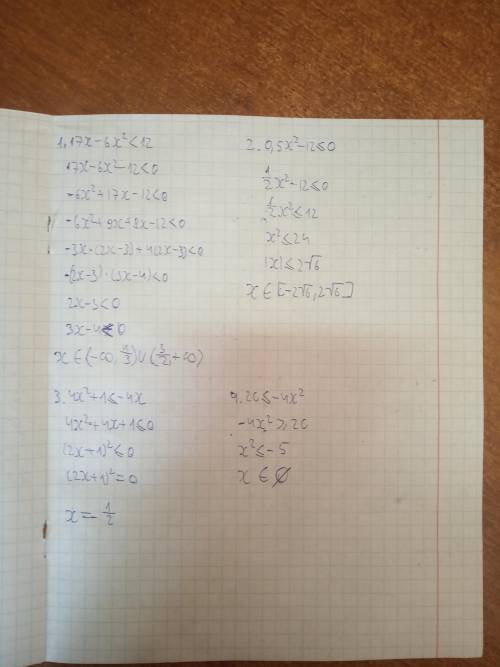 1. 17x-6x²<12
17x-6x²-12<0
-6x²+17x-12<0
-6x²+9x+8x-12<0
-3x·(2x-3)+4(2x-3)<0
-(2x-3)·(3x-4)<0
2x-3<0
3x-4<0
x∈(-∞, 4/3)∪(3/2, +∞)
2. 0,5x²-12≤0
1/2x²-12≤0
1/2x²≤12
x²≤24
|x|≤2√6
x∈[-2√6, 2√6]
3. 4x²+1≤-4x
4x²+4x+1≤0
(2x+1)²≤0
(2x+1)²=0
x=-1/2
4. 20≤-4x²
-4x²≥20
x²≤-5
x∈∅